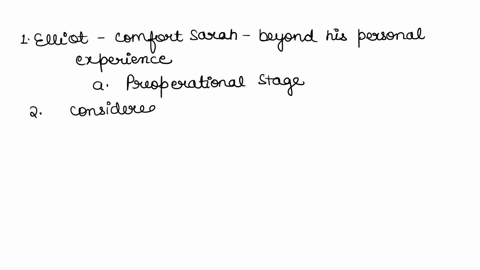 1. Elliot - comfort Sarah - beyond his personal
experience
a. Preoperational Stage
2. considere